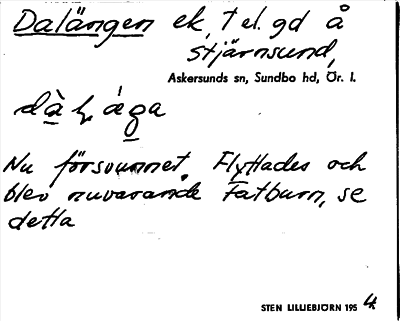 Dalängen ek, t el. gd å
Stjärnsund,
Askersunds sn, Sundbo hd, Ör. l.
Nu försvunnet. Flyttades och
blev nuvarande Fatburn, se
detta
STEN LILLIEBJÖRN 195 4